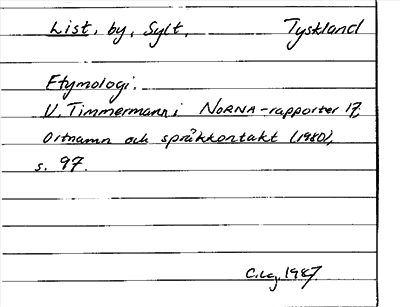 List, by, Sylt, Tyskland
Etymologi:
U. Timmermann i NORNA-rapporter 17,
Ortnamn och språkkontakt (1980),
s. 97.
1987